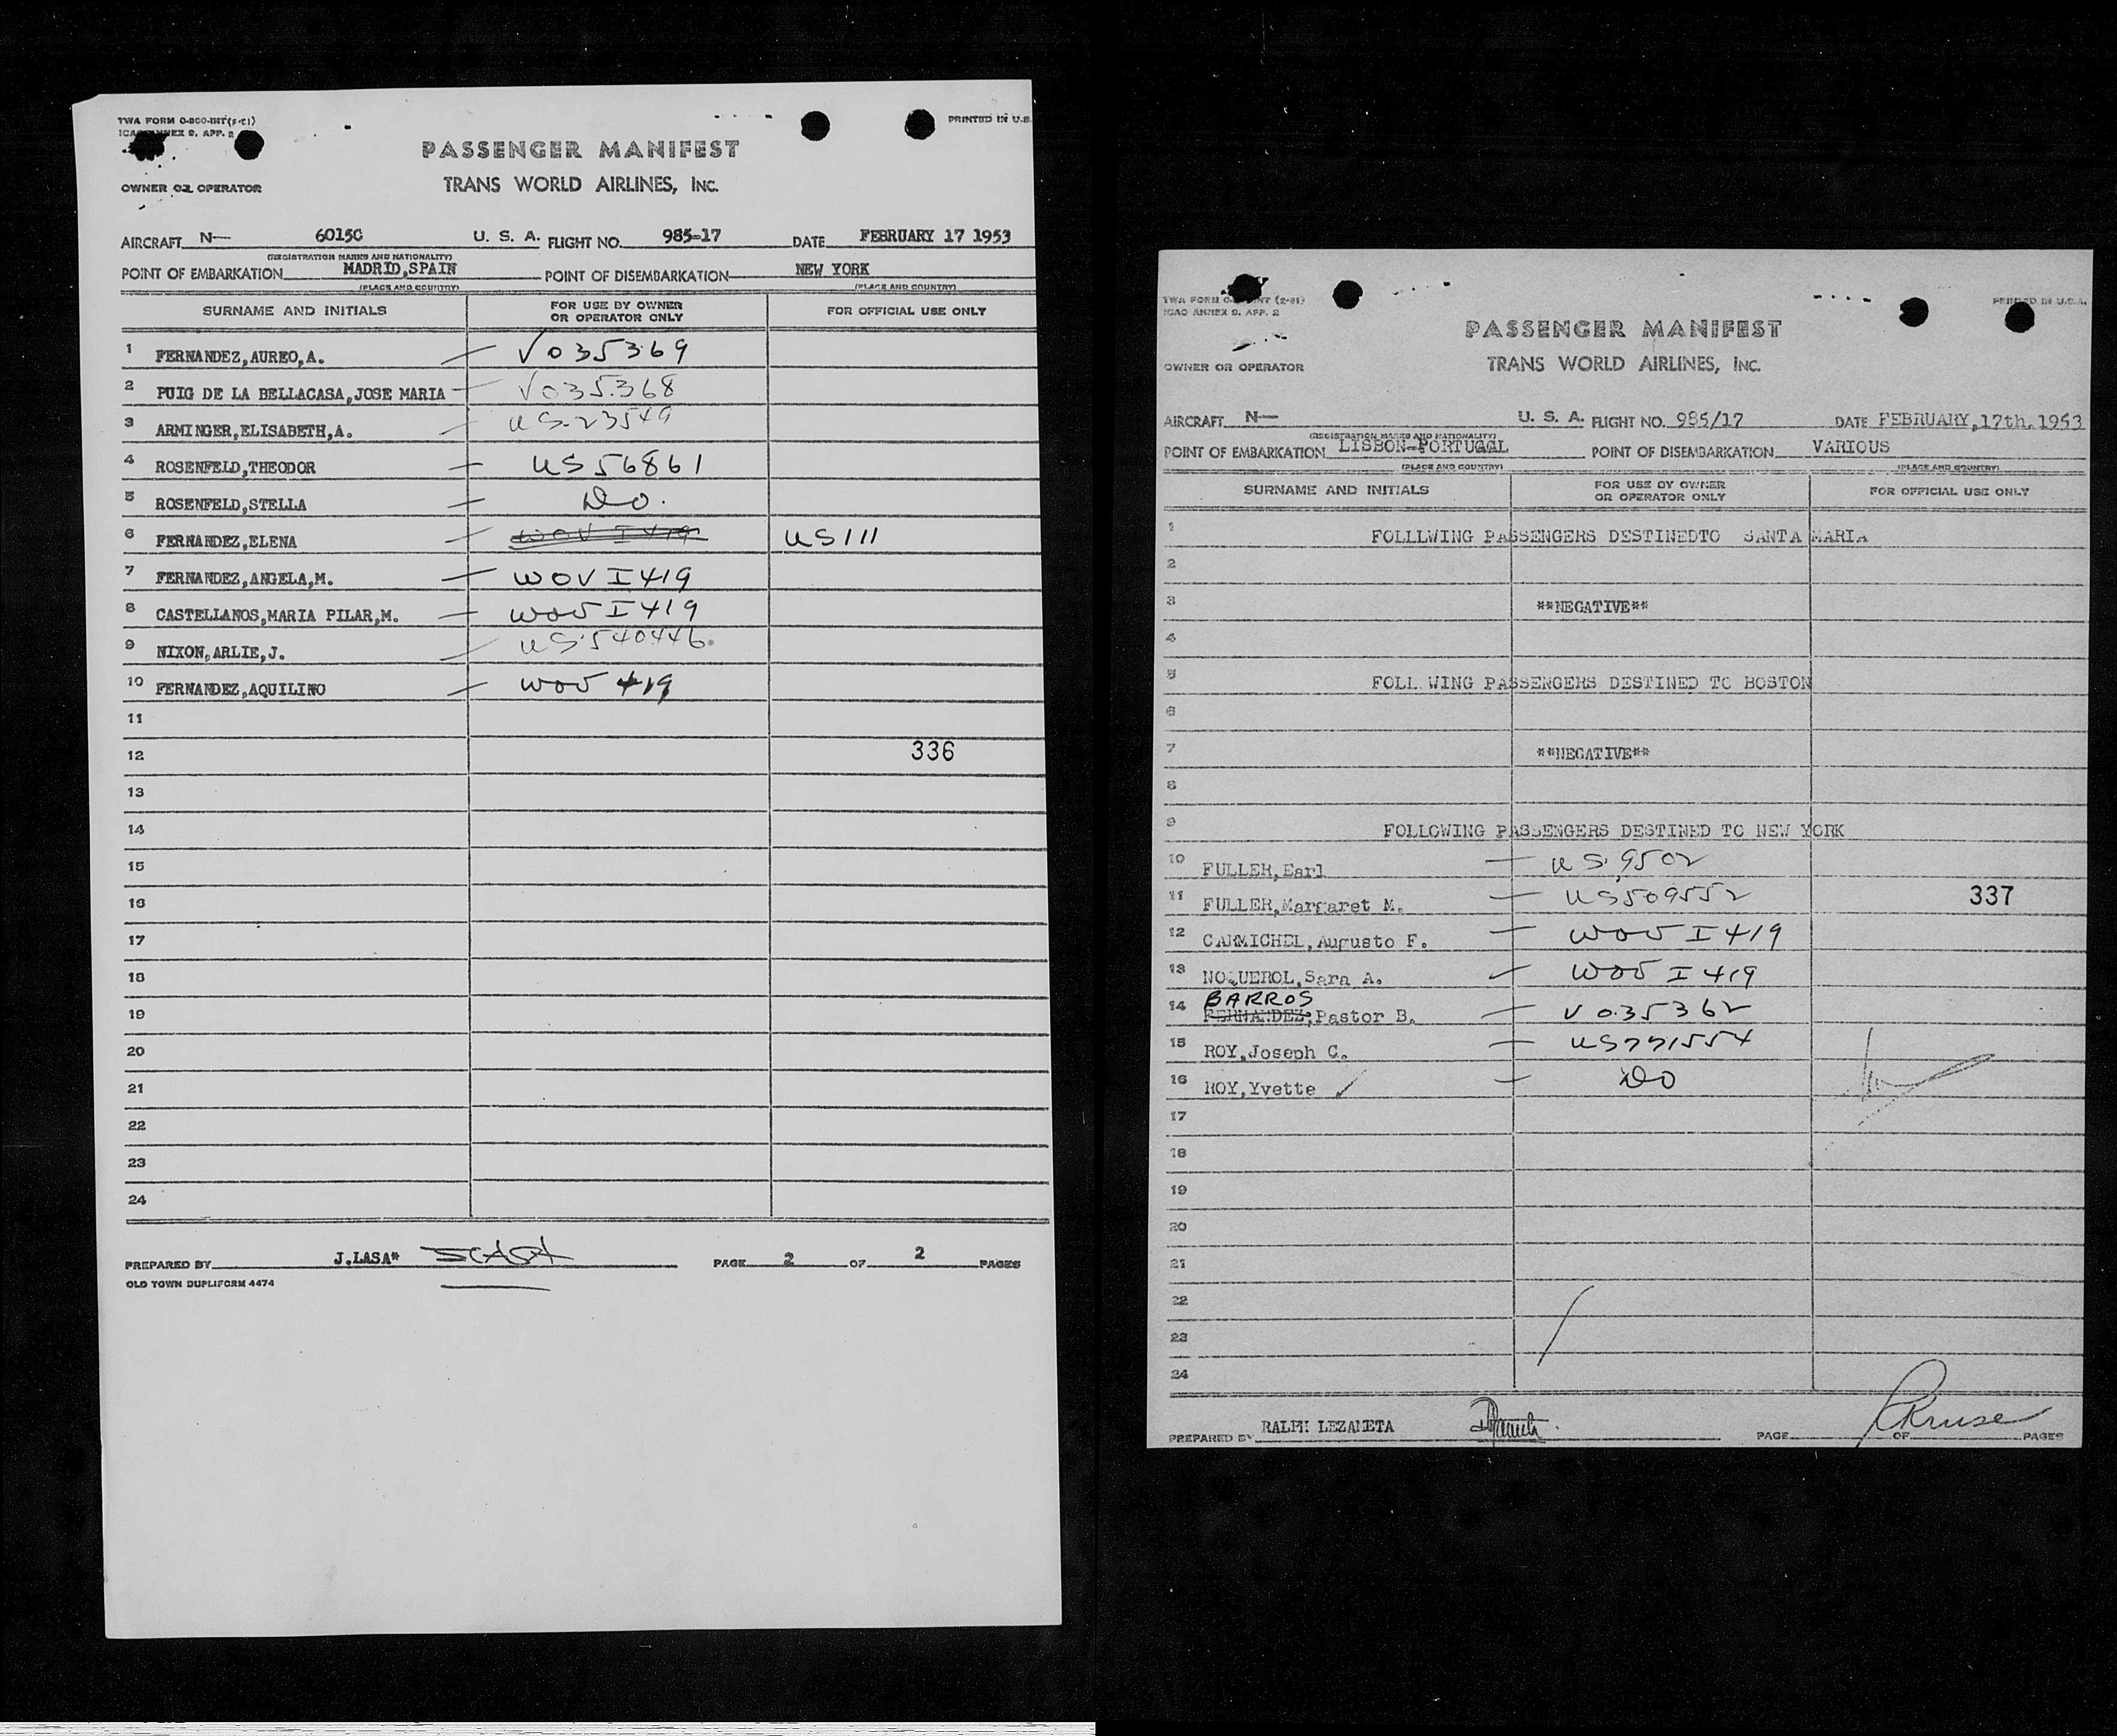 TWA FORM 0-800-INT
ICAO ANNEX 9. APP. 2
PRINTED IN U.S.
PASSENGER MANIFEST
OWNER OR OPERATOR
TRANS WORLD AIRLINES, INC.
AIRCRAFT N— 6015C U. S. A. FLIGHT NO. 985-17 DATE FEBRUARY 17 1953
(REGISTRATION MARKS AND NATIONALITY)
POINT OF EMBARKATION MADRID,SPAIN POINT OF DISEMBARKATION NEW YORK
(PLACE AND COUNTRY) (PLACE AND COUNTRY)
SURNAME AND INITIALS FOR USE BY OWNER OR OPERATOR ONLY FOR OFFICIAL USE ONLY
1 FERNANDEZ,AUREO,A. — V035369
2 PUIG DE LA BELLACASA,JOSE MARIA — V035368
3 ARMINGER,ELISABETH,A. — US.23549
4 ROSENFELD,THEODOR — US56861
5 ROSENFELD,STELLA — Do.
6 FERNANDEZ,ELENA — WOV I 419 US111
7 FERNANDEZ,ANGELA,M. — WOV I 419
8 CASTELLANOS,MARIA PILAR,M. — WOV I 419
9 NIXON,ARLIE,J. — US.540446.
10 FERNANDEZ,AQUILINO — WOV 419
11
12 336
13
14
15
16
17
18
19
20
21
22
23
24
PREPARED BY J.LASA* PAGE 2 OF 2 PAGES
OLD TOWN DUPLIFORM 4474
TWA FORM INT (2-51)
ICAO ANNEX 9. APP. 2
PRINTED IN U.S.A.
PASSENGER MANIFEST
OWNER OR OPERATOR
TRANS WORLD AIRLINES, INC.
AIRCRAFT N— U. S. A. FLIGHT NO. 985/17 DATE FEBRUARY,17th.1953
(REGISTRATION MARKS AND NATIONALITY)
POINT OF EMBARKATION LISBON-PORTUGAL POINT OF DISEMBARKATION VARIOUS
(PLACE AND COUNTRY) (PLACE AND COUNTRY)
SURNAME AND INITIALS FOR USE BY OWNER OR OPERATOR ONLY FOR OFFICIAL USE ONLY
1 FOLLLWING PASSENGERS DESTINEDTO SANTA MARIA
2
3 **NEGATIVE**
4
5 FOLL WING PASSENGERS DESTINED TO BOSTON
6
7 **NEGATIVE**
8
9 FOLLOWING PASSENGERS DESTINED TO NEW YORK
10 FULLER,Earl — US.9502
11 FULLER,Margaret M. — US509552 337
12 CARMICHEL,Augusto F. — WOV I 419
13 NOQUEROL,Sara A. — WOV I 419
BARROS
14 FERNANDEZ,Pastor B. — V035362
15 ROY,Joseph C. — US771554
16 ROY,Yvette ✓ — Do
17
18
19
20
21
22
23
24
PREPARED BY RALPH LEZAMETA PAGE OF PAGES
Kruse